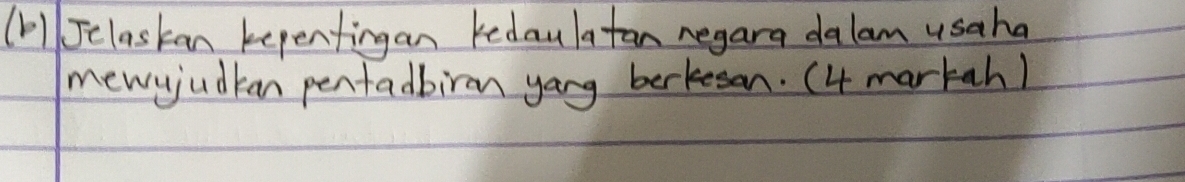 (b) Jelaskan kepentingan kedaulatan negara dalam usaha
mewujudkan pentadbiran yang berkesan. (4 markah)